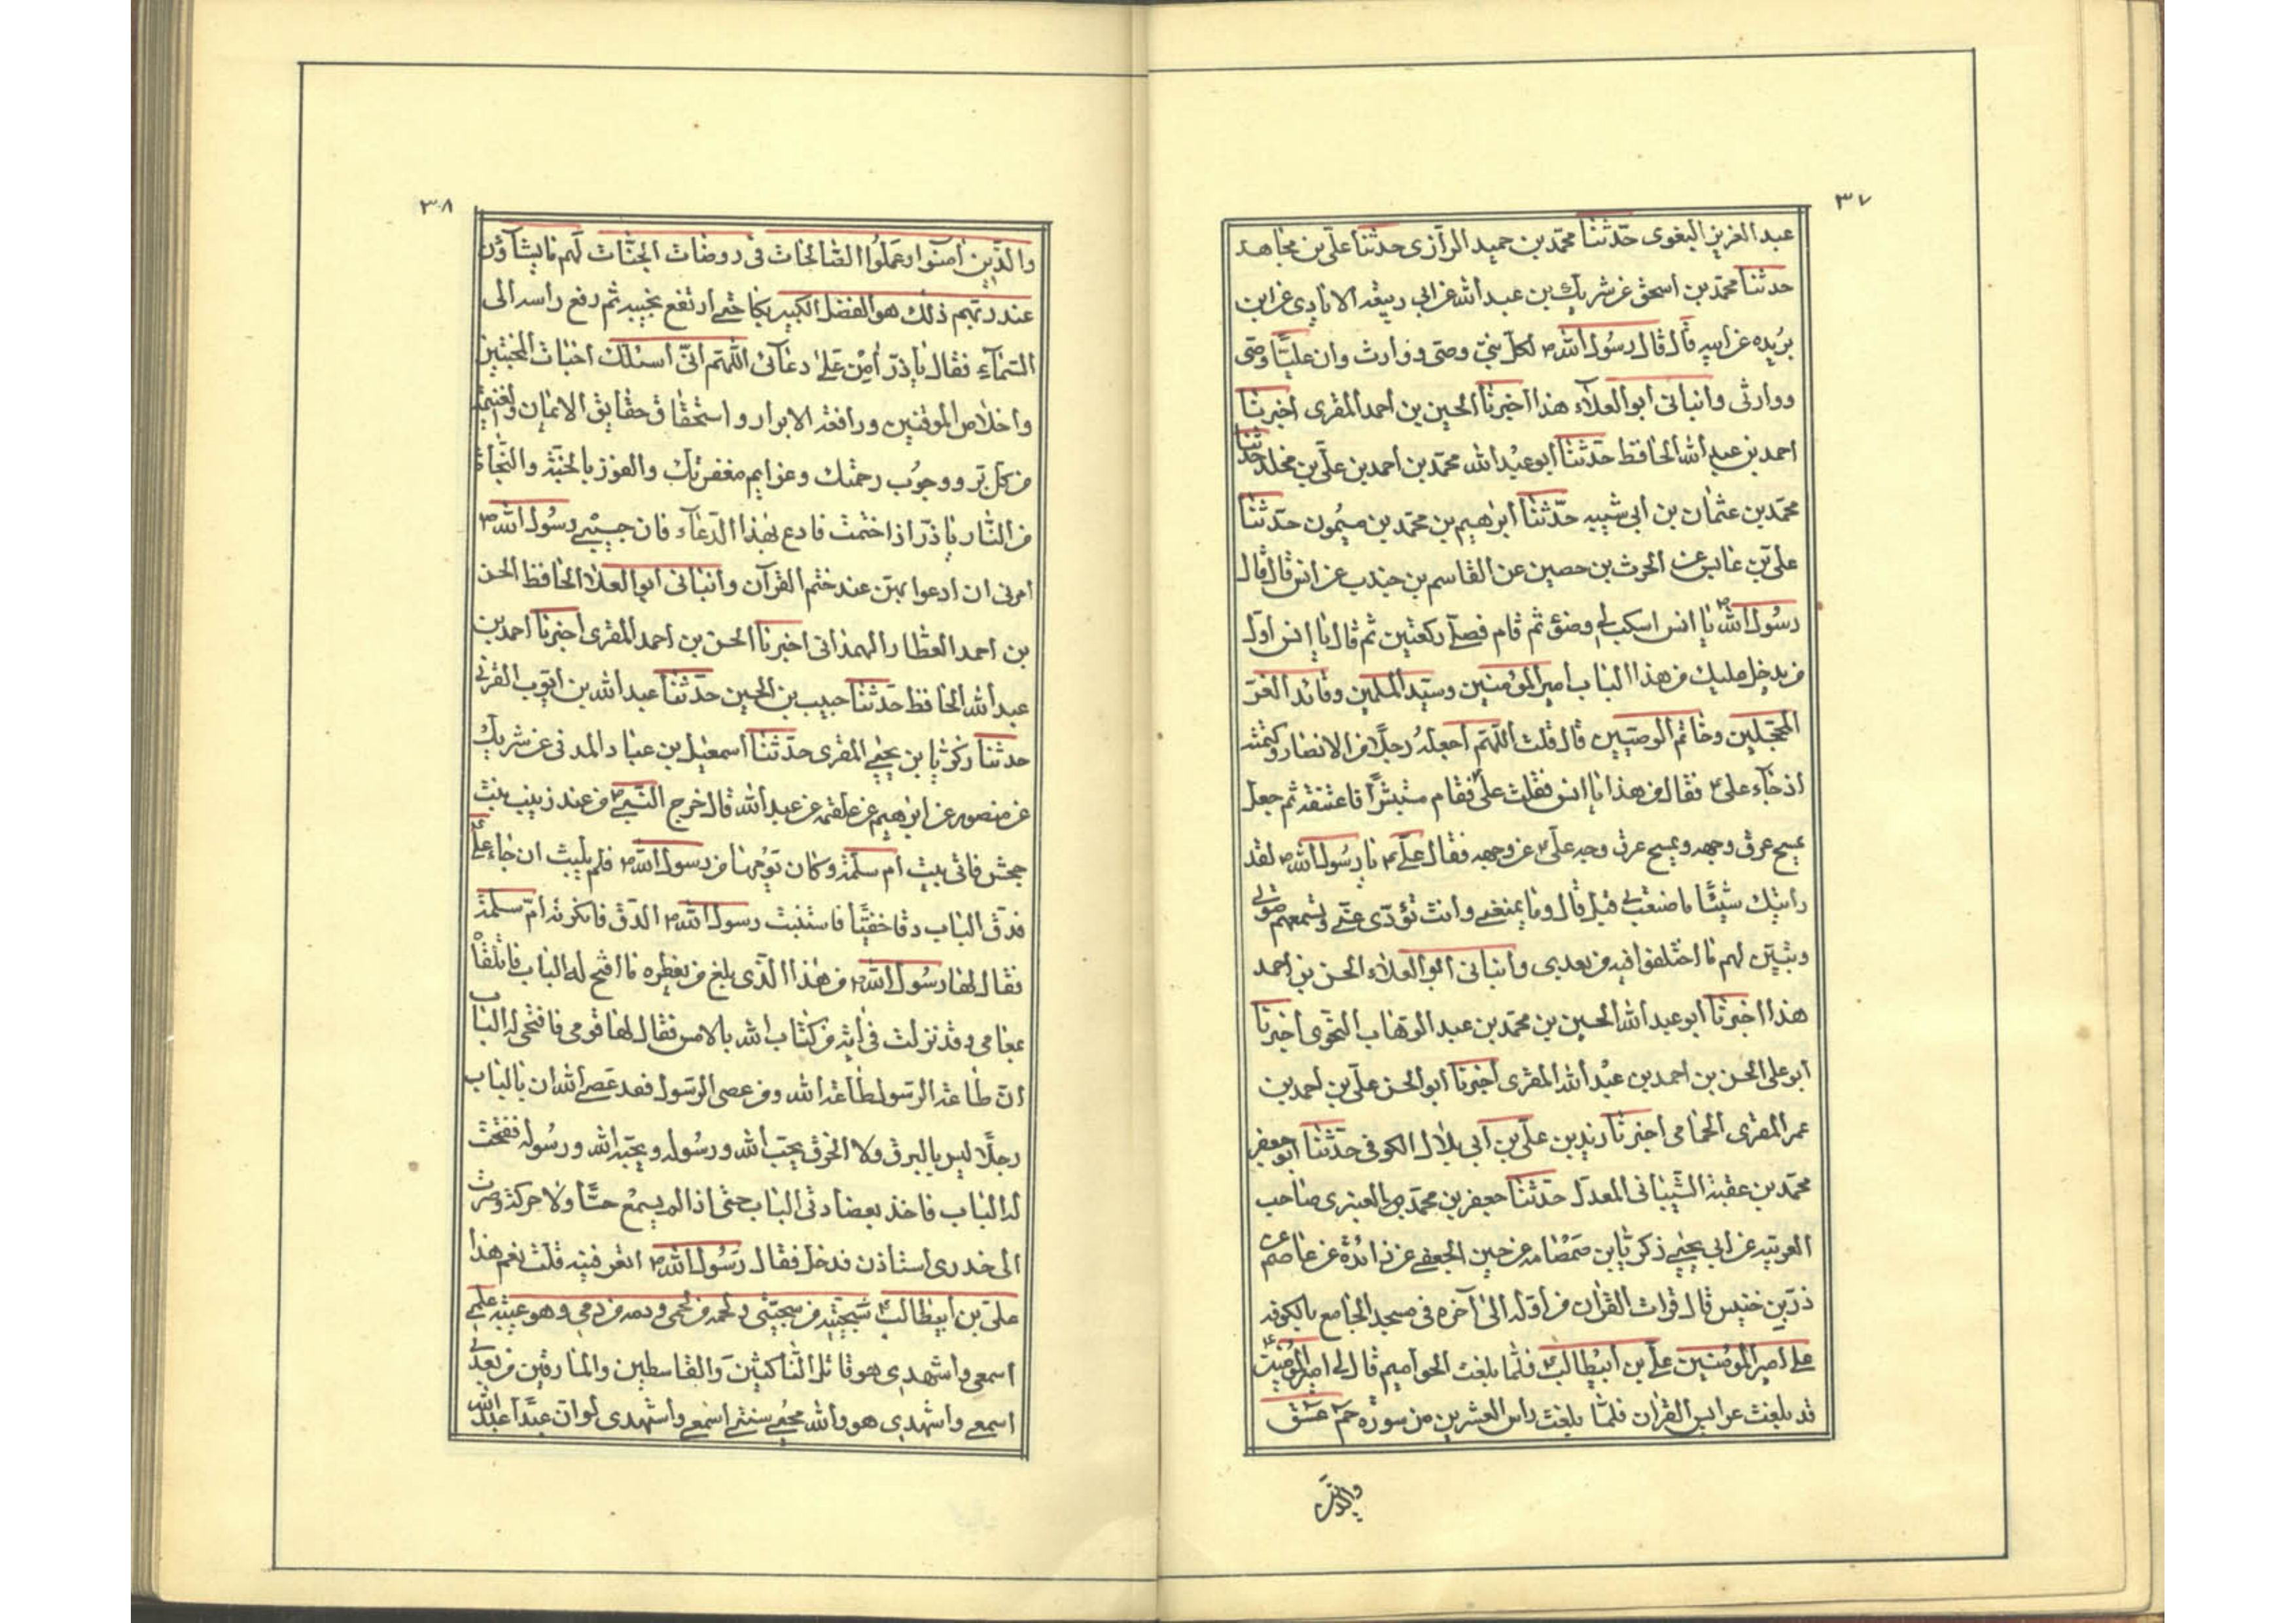 ٣٧
عبد العزيز البغوى حدّثنا محمّد بن حميد الرازى حدثنا علىّ بن مجاهد
حدثنا محمّد بن اسحق عن شريك بن عبد الله عن ابى ربيعة الايادى عن ابن
بُريده عن ابيه قال قال رسول الله ص لكل نبىّ وصى ووارث وان عليّاً وصى
ووارثى وانبانى ابو العلاء هذا اخبرنا الحسين بن احمد المقرى اخبرنا
احمد بن عبد الله الحافظ حدّثنا ابو عبد الله محمّد بن احمد بن علىّ بن مخلد حدثنا
محمّد بن عثمان بن ابى شيبه حدّثنا ابرهيم بن محمّد بن ميمُون حدثنا
على بن عابس عن الحرث بن حصين عن القاسم بن جندب عن انس قال قال
رسُول الله ص يا انس اسكب لى وضوء ثم قام فصلّى ركعتين ثم قال يا انس اوّل
من يدخل عليك من هذا الباب امير المؤمنين وسيّد المسلمين وقائد الغرّ
المحجّلين وخاتم الوصيّين قال قلت اللّهم اجعلهُ رجلاً من الانصار وكتمته
اذ جآء على ع فقال من هذا يا انس فقلت علىّ فقام مستبشراً فاعتنقه ثم جعل
يمسح عرق وجهه ويمسح عرق وجه على ع عن وجهه فقال علىّ ع يا رسُول الله ص لقد
رايتك شيئًا ما صنعت بى قبل قال وما يمنعنى وانت تؤدّى عنّى وتسمعهم صوتى
وتبيّن لهم ما اختلفوا فيه من بعدى وانبانى ابو العلاء الحسن بن احمد
هذا اخبرنا ابو عبد الله الحسين بن محمّد بن عبد الوهاب النحوى اخبرنا
ابو على الحسن بن احمد بن عبد الله المقرى اخبرنا ابو الحسن علىّ بن احمد بن
عمر المقرى الحمامى اخبرنا زيد بن علىّ بن ابى بلال الكوفى حدّثنا ابو جعفر
محمّد بن عقبة الشّيبانى المعدّل حدّثنا جعفر بن محمّد العنبرى صاحب
العربيّه عن ابى يحيى زكريّا بن صمصامه عن حسين الجعفى عن زائدة عن عاصم عن
ذرّ بن خنيس قال قرات القرآن من اوّله الى آخره فى مسجد الجامع بالكوفه
على امير المؤمنين علىّ بن ابيطالب ع فلمّا بلغت الحواميم قال لى امير المؤمنين ع
قد بلغت عرايس القرآن فلمّا بلغت راس العشرين من سوره حمعسق
والذين
٣٨
والّذين آمنوا وعملُوا الصّالحات فى روضات الجنّات لهم ما يشاؤن
عند ربّهم ذلك هو الفضل الكبير بكا حتى ارتفع نحيبه ثم رفع راسه الى
السّمآء فقال يا ذرّ امّن على دعآئى اللّهم انّى اسئلك اخبات المخبتين
واخلاص الموقنين ورافقة الابرار واستحقاق حقايق الايمان والغنيمة
من كلّ برّ ووجوب رحمتك وعزايم مغفرتك والفوز بالجنّة والنّجاة
من النّار يا ذرّ اذا ختمت فادع بهذا الدّعآء فان حبيبى رسُول الله ص
امرنى ان ادعوا بهنّ عند ختم القرآن وانبانى ابو العلا الحافظ الحسن
بن احمد العطّار الهمدانى اخبرنا الحسن بن احمد المقرى اخبرنا احمد بن
عبد الله الحافظ حدّثنا حبيب بن الحسين حدّثنا عبد الله بن ايّوب القربى
حدثنا زكريّا بن يحيى المقرى حدّثنا اسمعيل بن عباد المدنى عن شريك
عن منصور عن ابرهيم عن علقمه عن عبد الله قال خرج النّبى ص من عند زينب بنت
جحش فاتى بيت ام سلمة وكان يومها من رسول الله ص فلم يلبث ان جاء على ع
فدقّ الباب دقا خفيّاً فاستثبت رسول الله ص الدّق فانكرته امّ سلمة
فقال لها رسُول الله ص من هذا الّذى بلغ من خطره ما افتح له الباب فاتلقاه
بمعاصمى وقد نزلت فىّ آية من كتاب الله بالامس فقال لها قومى فافتحى له الباب
انّ طاعة الرّسول طاعة الله ومن عصى الرّسول فقد عصى الله ان بالباب
رجلاً ليس بالبرق ولا الخرق يحبّ الله ورسُوله ويحبّه الله ورسوله ففتحت
له الباب فاخذ بعضادتى الباب حتى اذا لم يسمع حسّاً ولا حركة وصرت
الى خدرى استاذن فدخل فقال رَسُول الله ص اتعرفينه قلت نعم هذا
علىّ بن ابيطالب ع سَجيّته من سجيّتى ولحمه من لحمى ودمه من دمى وهو عيبة علمى
اسمعى واشهدى هو قاتل النّاكثينَ والقاسطين والمارقين من بعدى
اسمعى واشهدى هو والله محيى سنّتى اسمعى واشهدى لو انّ عبداً عبد الله